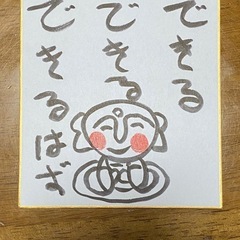 できる
できる
できるはず